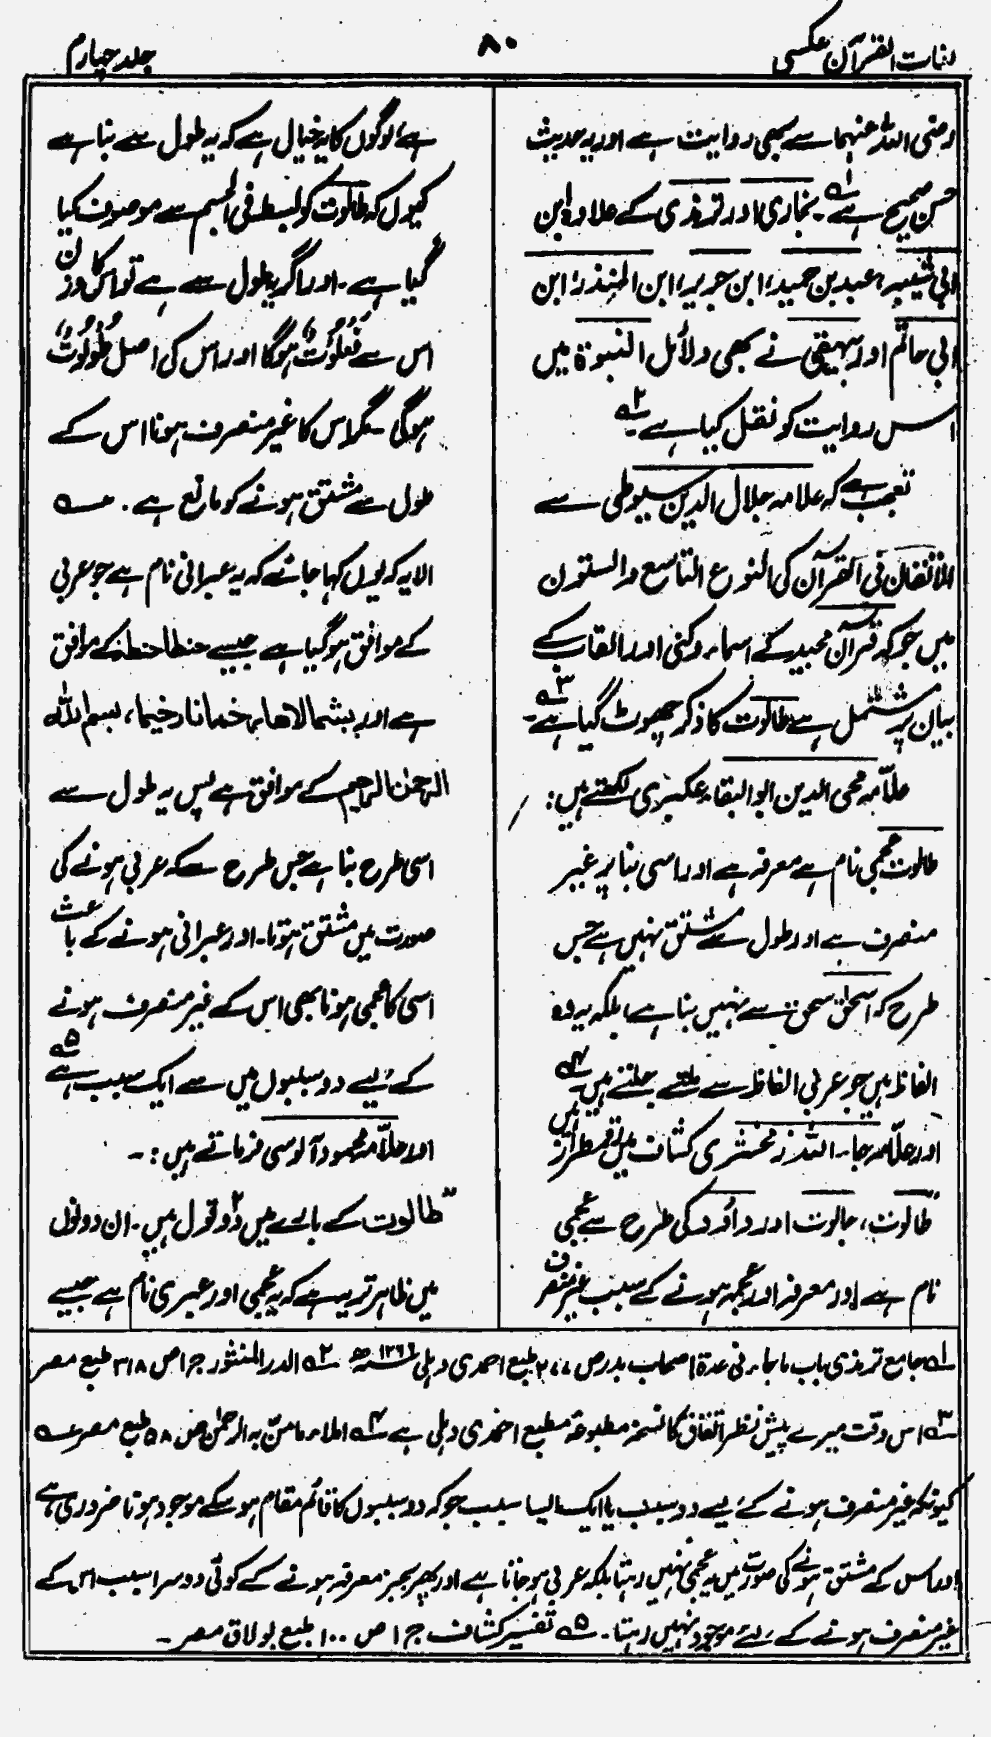 لغات القرآن عکسی
۸۰
جلد چہارم
رضی اللہ عنہما سے بھی روایت ہے اور یہ حدیث
حسن صحیح ہے لہ۔ بخاری اور ترمذی کے علاوہ ابن
ابی شیبہ، عبد بن حمید، ابن جریر، ابن المنذر، ابن
ابی حاتم اور بیہقی نے بھی دلائل النبوۃ میں
اس روایت کو نقل کیا ہے ۲ہ۔
تعجب ہے کہ علامہ جلال الدین سیوطی سے
الاتقان فی القرآن کی النوع التاسع والستون
میں جو کہ قرآن مجید کے اسماء و کنی اور القاب کے
بیان پر مشتمل ہے طالوت کا ذکر چھوٹ گیا ہے ۳ہ۔
علامہ محی الدین ابوالبقاء عکبری لکھتے ہیں:
طالوت عجمی نام ہے معرفہ ہے اور اسی بنا پر غیر
منصرف ہے اور طول سے مشتق نہیں ہے جس
طرح کہ اسحٰق سحق سے نہیں بنا ہے، بلکہ یہ وہ
الفاظ ہیں جو عربی الفاظ سے ملتے جلتے ہیں ۴ہ۔
اور علامہ جار اللہ زمخشری کشاف میں رقمطراز ہیں
"طالوت، جالوت اور داؤد کی طرح سے عجمی
نام ہے اور معرفہ اور عجمہ ہونے کے سبب غیر منصرف
ہے، لوگوں کا یہ خیال ہے کہ یہ طول سے بنا ہے
کیوں کہ طالوت کو بسط فی الجسم سے موصوف کیا
گیا ہے۔ اور اگر یہ طول سے ہے تو اس کا وزن
اس سے فَعَلُوْتٌ ہوگا اور اس کی اصل طَوَلُوْتٌ
ہوگی۔ مگر اس کا غیر منصرف ہونا اس کے
طول سے مشتق ہونے کو مانع ہے۔ عہ
الا یہ کہ یوں کہا جائے کہ یہ عبرانی نام ہے جو عربی
کے موافق ہو گیا ہے جیسے حنطا حنطۃ کے موافق
ہے اور بشمالاھا رخمانا رخیما، بسم اللہ
الرحمٰن الرحیم کے موافق ہے پس یہ طول سے
اسی طرح بنا ہے جس طرح سے کہ عربی ہونے کی
صورت میں مشتق ہوتا۔ اور عبرانی ہونے کے باعث
اسی کا عجمی ہونا بھی اس کے غیر منصرف ہونے
کے لیے دو سببوں میں سے ایک سبب ہے ۵ہ
اور علامہ محمود آلوسی فرماتے ہیں:۔
"طالوت کے بارے میں دو قول ہیں۔ ان دونوں
میں ظاہر تر یہ ہے کہ یہ عجمی اور عبری نام ہے جیسے
لہ جامع ترمذی باب ما جاء فی عدۃ اصحاب بدر ص ۲۷۷ طبع احمدی دہلی ۱۲۶۶ھ ۲ہ الدر المنثور ج ۱ ص ۳۱۸ طبع مصر
۳ہ اس وقت میرے پیش نظر اتقان کا نسخہ مطبوعہ مطبع احمدی دہلی ہے ۴ہ املاء ما من بہ الرحمٰن ص ۵۸ طبع مصر عہ
کیونکہ غیر منصرف ہونے کے لیے دو سبب یا ایک ایسا سبب جو کہ دو سببوں کا قائم مقام ہو سکے موجود ہونا ضروری ہے،
اور اس کے مشتق ہونے کی صورت میں یہ عجمی نہیں رہتا بلکہ عربی ہو جاتا ہے اور پھر بجز معرفہ ہونے کے کوئی دوسرا سبب اس کے
غیر منصرف ہونے کے لئے موجود نہیں رہتا۔ ۵ہ تفسیر کشاف ج ۱ ص ۱۰۰ طبع بولاق مصر۔